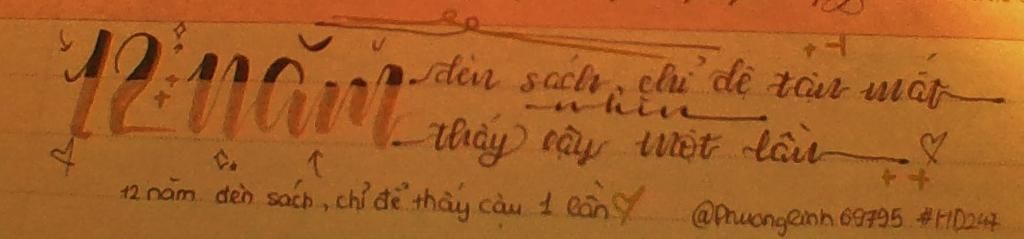 12 năm đèn sách, chỉ để tận mắt
nhìn
thấy cậy một lần
12 năm đèn sách, chỉ để thấy càu 1 lần
@Phuonglinh69795 #HD247